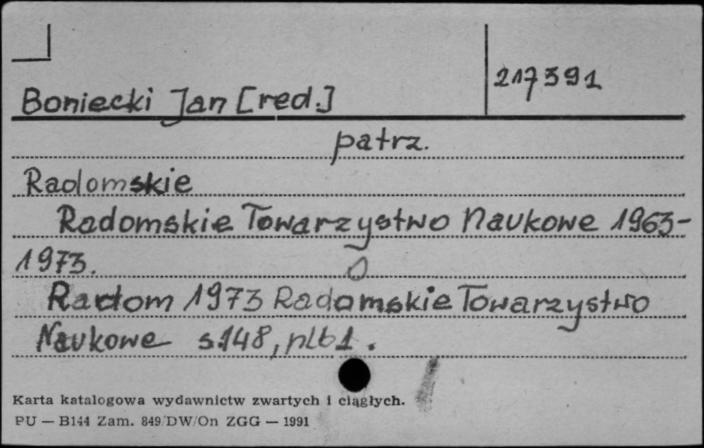 217591
Boniecki Jan [red.]
patrz.
Radomskie
Radomskie Towarzystwo Naukowe 1963-
1973.
Radom 1973 Radomskie Towarzystwo
Naukowe s.148, nlb1.
Karta katalogowa wydawnictw zwartych i ciągłych.
PU — B144 Zam. 849/DW/On ZGG — 1991